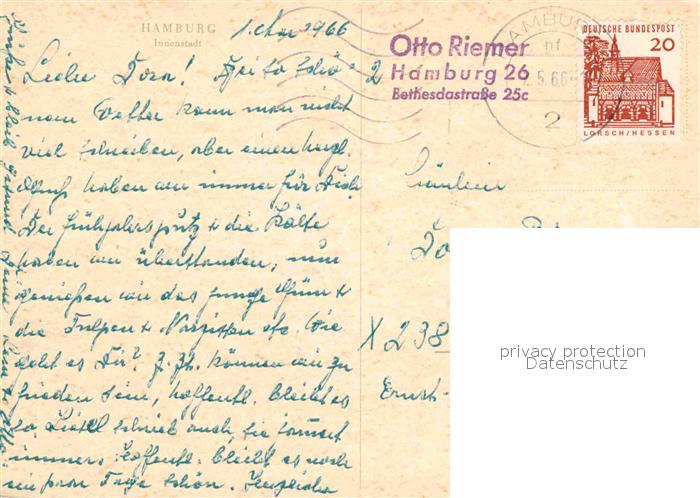 HAMBURG
Innenstadt
1. Mai 1966
Otto Riemer
Hamburg 26
Bethesdastraße 25c
HAMBURG
2.5.66
2
2
DEUTSCHE BUNDESPOST
20
LORSCH/HESSEN
Liebe Dora! Bei so schö-
nem Wetter kann man nicht
viel schreiben, aber einen herzl.
Gruß haben wir immer für Dich.
Den Frühjahrsputz & die Kälte
haben wir überstanden, nun
genießen wir das junge Grün &
die Tulpen & Narzissen etc. Wie
geht es Dir? Z. Zt. können wir zu
frieden sein, hoffentl. bleibt es
so. Liesel schrieb auch, sie
immer. Hoffentl. bleibt es noch
ein paar Tage schön. Herzliche
Grüße & bleib gesund
Fräulein
X 238
Ernst-
privacy protection
Datenschutz